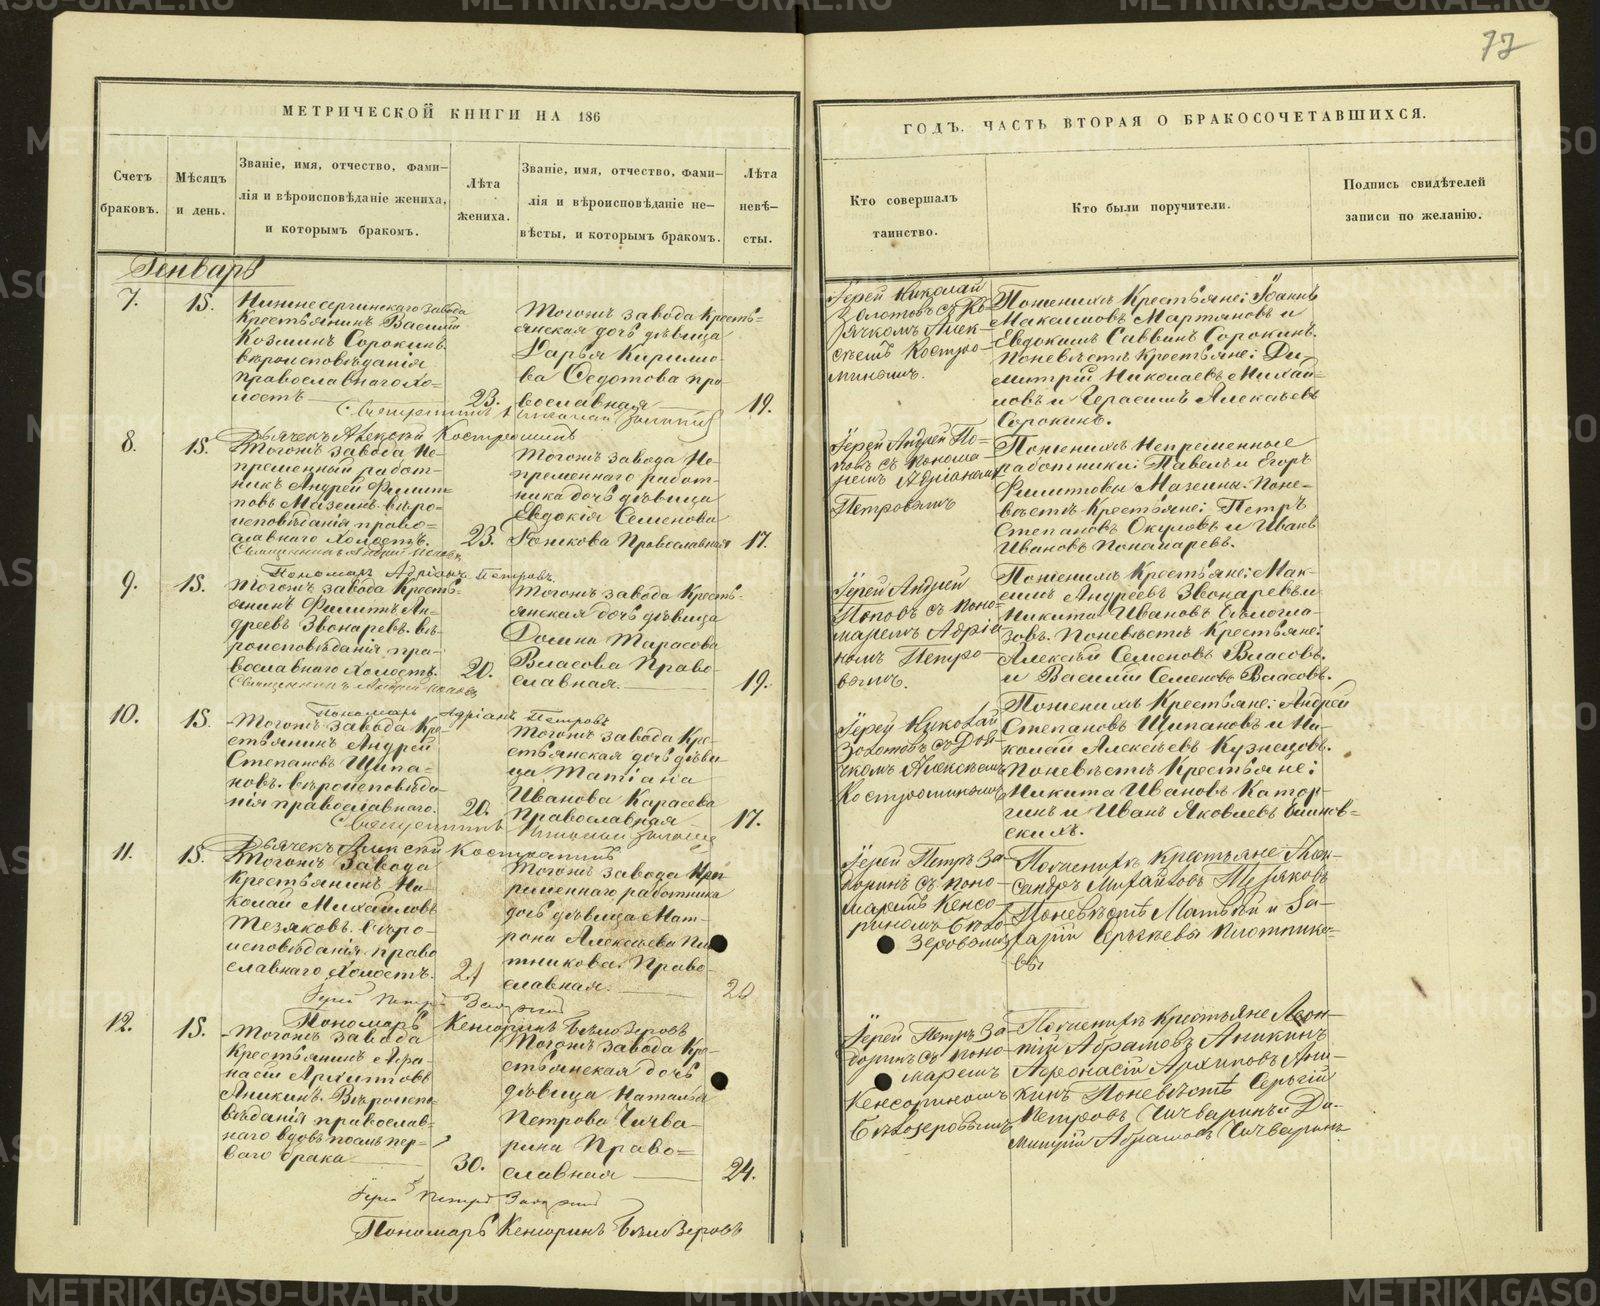 77
МЕТРИЧЕСКОЙ КНИГИ НА 186
ГОДЪ. ЧАСТЬ ВТОРАЯ О БРАКОСОЧЕТАВШИХСЯ.
Счетъ
браковъ.
Мѣсяцъ
и день.
Званіе, имя, отчество, фами-
лія и вѣроисповѣданіе жениха,
и которымъ бракомъ.
Лѣта
жениха.
Званіе, имя, отчество, фами-
лія и вѣроисповѣданіе не-
вѣсты, и которымъ бракомъ.
Лѣта
невѣ-
сты.
Кто совершалъ
таинство.
Кто были поручители.
Подпись свидѣтелей
записи по желанію.
Генварь
7.
15.
Нижнесергинскаго завода
Крестьянинъ Василій
Козминъ Сорокинъ
вѣроисповѣданія
православнаго хо=
лостъ
23.
Тогожъ завода Кресть=
янская дочь дѣвица
Дарья Кирило
ва Ѳедотова пра
вославная
19.
Іерей Николай
Золотовъ съ Дь
ячкомъ Алек-
сѣемъ Костро-
минымъ.
Поженихѣ Крестьяне: Іоаннъ
Максимовъ Мартяновъ и
Евдокимъ Саввинъ Сорокинъ.
Поневѣстѣ Крестьяне: Ди
митрій Николаевъ Михай-
ловъ и Герасимъ Алексѣевъ
Сорокинъ.
Дьячекъ Алексѣй Костроминъ
8.
15.
Тогожъ завода Не
премѣнный работ-
никъ Андрей Филип=
повъ Мазеинъ вѣро-
исповѣданія право=
славнаго Холостъ.
23.
Тогожъ завода Не-
премѣннаго работ-
ника дочь дѣвица
Евдокія Семенова
Православная
17.
Священникъ Андрей Поповъ
Пономарь Адріанъ Петровъ
Іерей Андрей По=
повъ съ Понома-
ремъ Адріаномъ
Петровымъ
Поженихѣ Непремѣнные
работники: Павелъ и Егоръ
Филиповы Мазеины. Поне-
вѣстѣ Крестьяне: Петръ
Степановъ Окуловъ и Иванъ
Ивановъ Пономаревъ.
9.
15.
Тогожъ завода Кресть=
янинъ Филипъ Ан-
дреевъ Звонаревъ. вѣ-
роисповѣданія пра-
вославнаго Холостъ.
20.
Тогожъ завода Кресть-
янская дочь дѣвица
Домна Тарасова
Власова Право
славная.
19.
Священникъ Андрей Поповъ
Пономарь Адріанъ Петровъ
Іерей Андрей
Поповъ съ Поно-
маремъ Адріа
номъ Петро-
вымъ.
Поженихѣ Крестьяне: Мак-
симъ Андреевъ Звонаревъ и
Никита Ивановъ Бѣлогла-
зовъ. Поневѣстѣ Крестьяне:
Алексѣй Семеновъ Власовъ.
и Василій Семеновъ Власовъ.
10.
15.
Тогожъ завода Кре-
стьянинъ Андрей
Степановъ Щипа-
новъ. вѣроисповѣда-
нія православнаго.
20.
Тогожъ завода Кре-
стьянская дочь дѣви
ца Татіана
Иванова Карасева
Православная
17.
Дьячекъ Алексѣй Костроминъ
Іерей Николай
Золотовъ съ Дья-
чкомъ Алексѣемъ
Костроминымъ
Поженихѣ Крестьяне: Андрей
Степановъ Щипановъ и Ни-
колай Алексѣевъ Кузнецовъ.
Поневѣстѣ Крестьяне:
Никита Ивановъ Катор-
гинъ и Иванъ Яковлевъ
скихъ.
11.
15.
Тогожъ Завода
Крестьянинъ Ни-
колай Михайловъ
Тезяковъ. вѣро-
исповѣданія право
славнаго Холостъ.
21
Тогожъ завода Не
премѣннаго работника
дочь дѣвица Мат-
рона Алексѣева Пло
тникова. Право-
славная.
20
Іерей Петръ
Пономарь Кенсоринъ Бѣлозеровъ
Іерей Петръ За-
доринъ съ поно-
маремъ Кенсо-
риномъ Бѣло-
зеровымъ
Поженихѣ Крестьяне
Михайловъ Тезяковъ
Поневѣстѣ Матвѣй и За-
харій Сергѣевы Плотнико-
вы
12.
15.
Тогожъ завода
Крестьянинъ Афа-
насій Архиповъ
Аникинъ. Вѣроиспо-
вѣданія православ-
наго вдовъ послѣ пер-
ваго брака
30.
Тогожъ завода Кре-
стьянская дочь
дѣвица Наталья
Петрова Чичва-
рина Право=
славная
24.
Іерей Петръ
Пономарь Кенсоринъ Бѣлозеровъ
Іерей Петръ За-
доринъ съ поно
маремъ
Кенсориномъ
Бѣлозеровымъ
Поженихѣ Крестьяне Леон-
тій Абрамовъ Аникинъ
Афонасій Архиповъ Ани-
кинъ Поневѣстѣ Сергѣй
Петровъ Чичваринъ и Ди-
митрій Абрамовъ Чичваринъ
METRIKI.GASO-URAL.RU